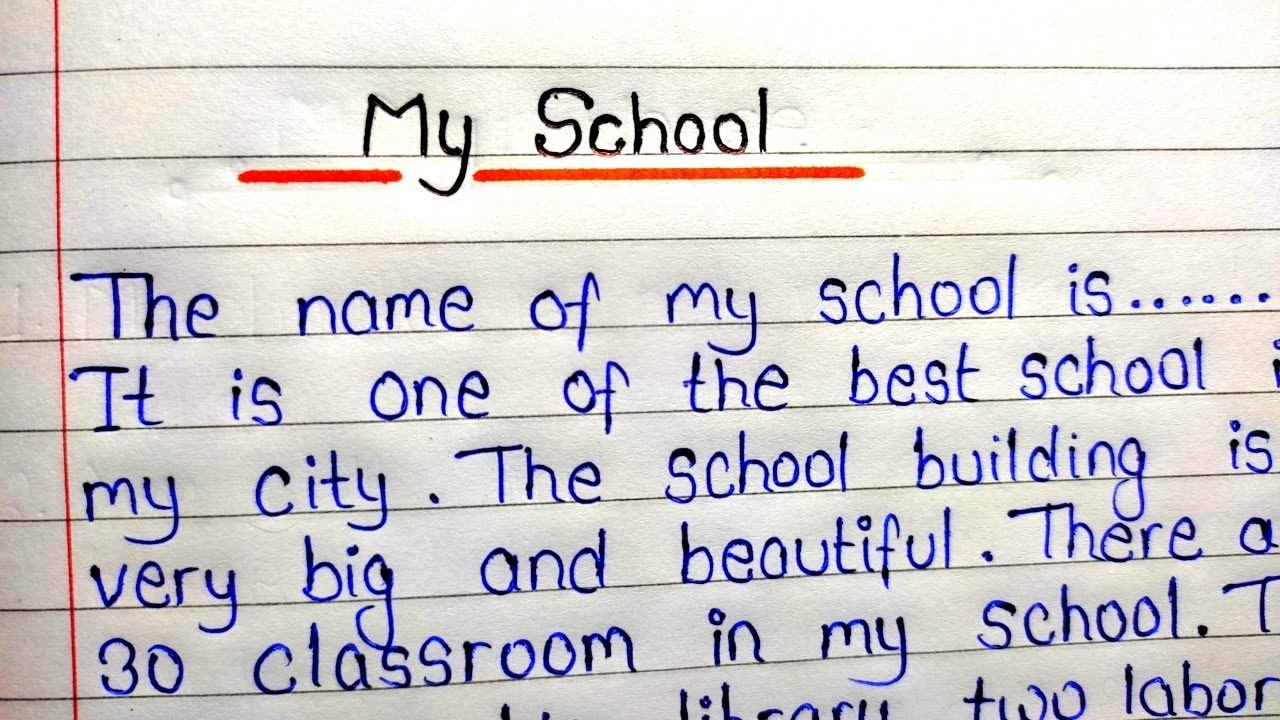 My School
The name of my school is......
It is one of the best school
my city. The school building is
very big and beautiful. There
30 classroom in my school.
library two